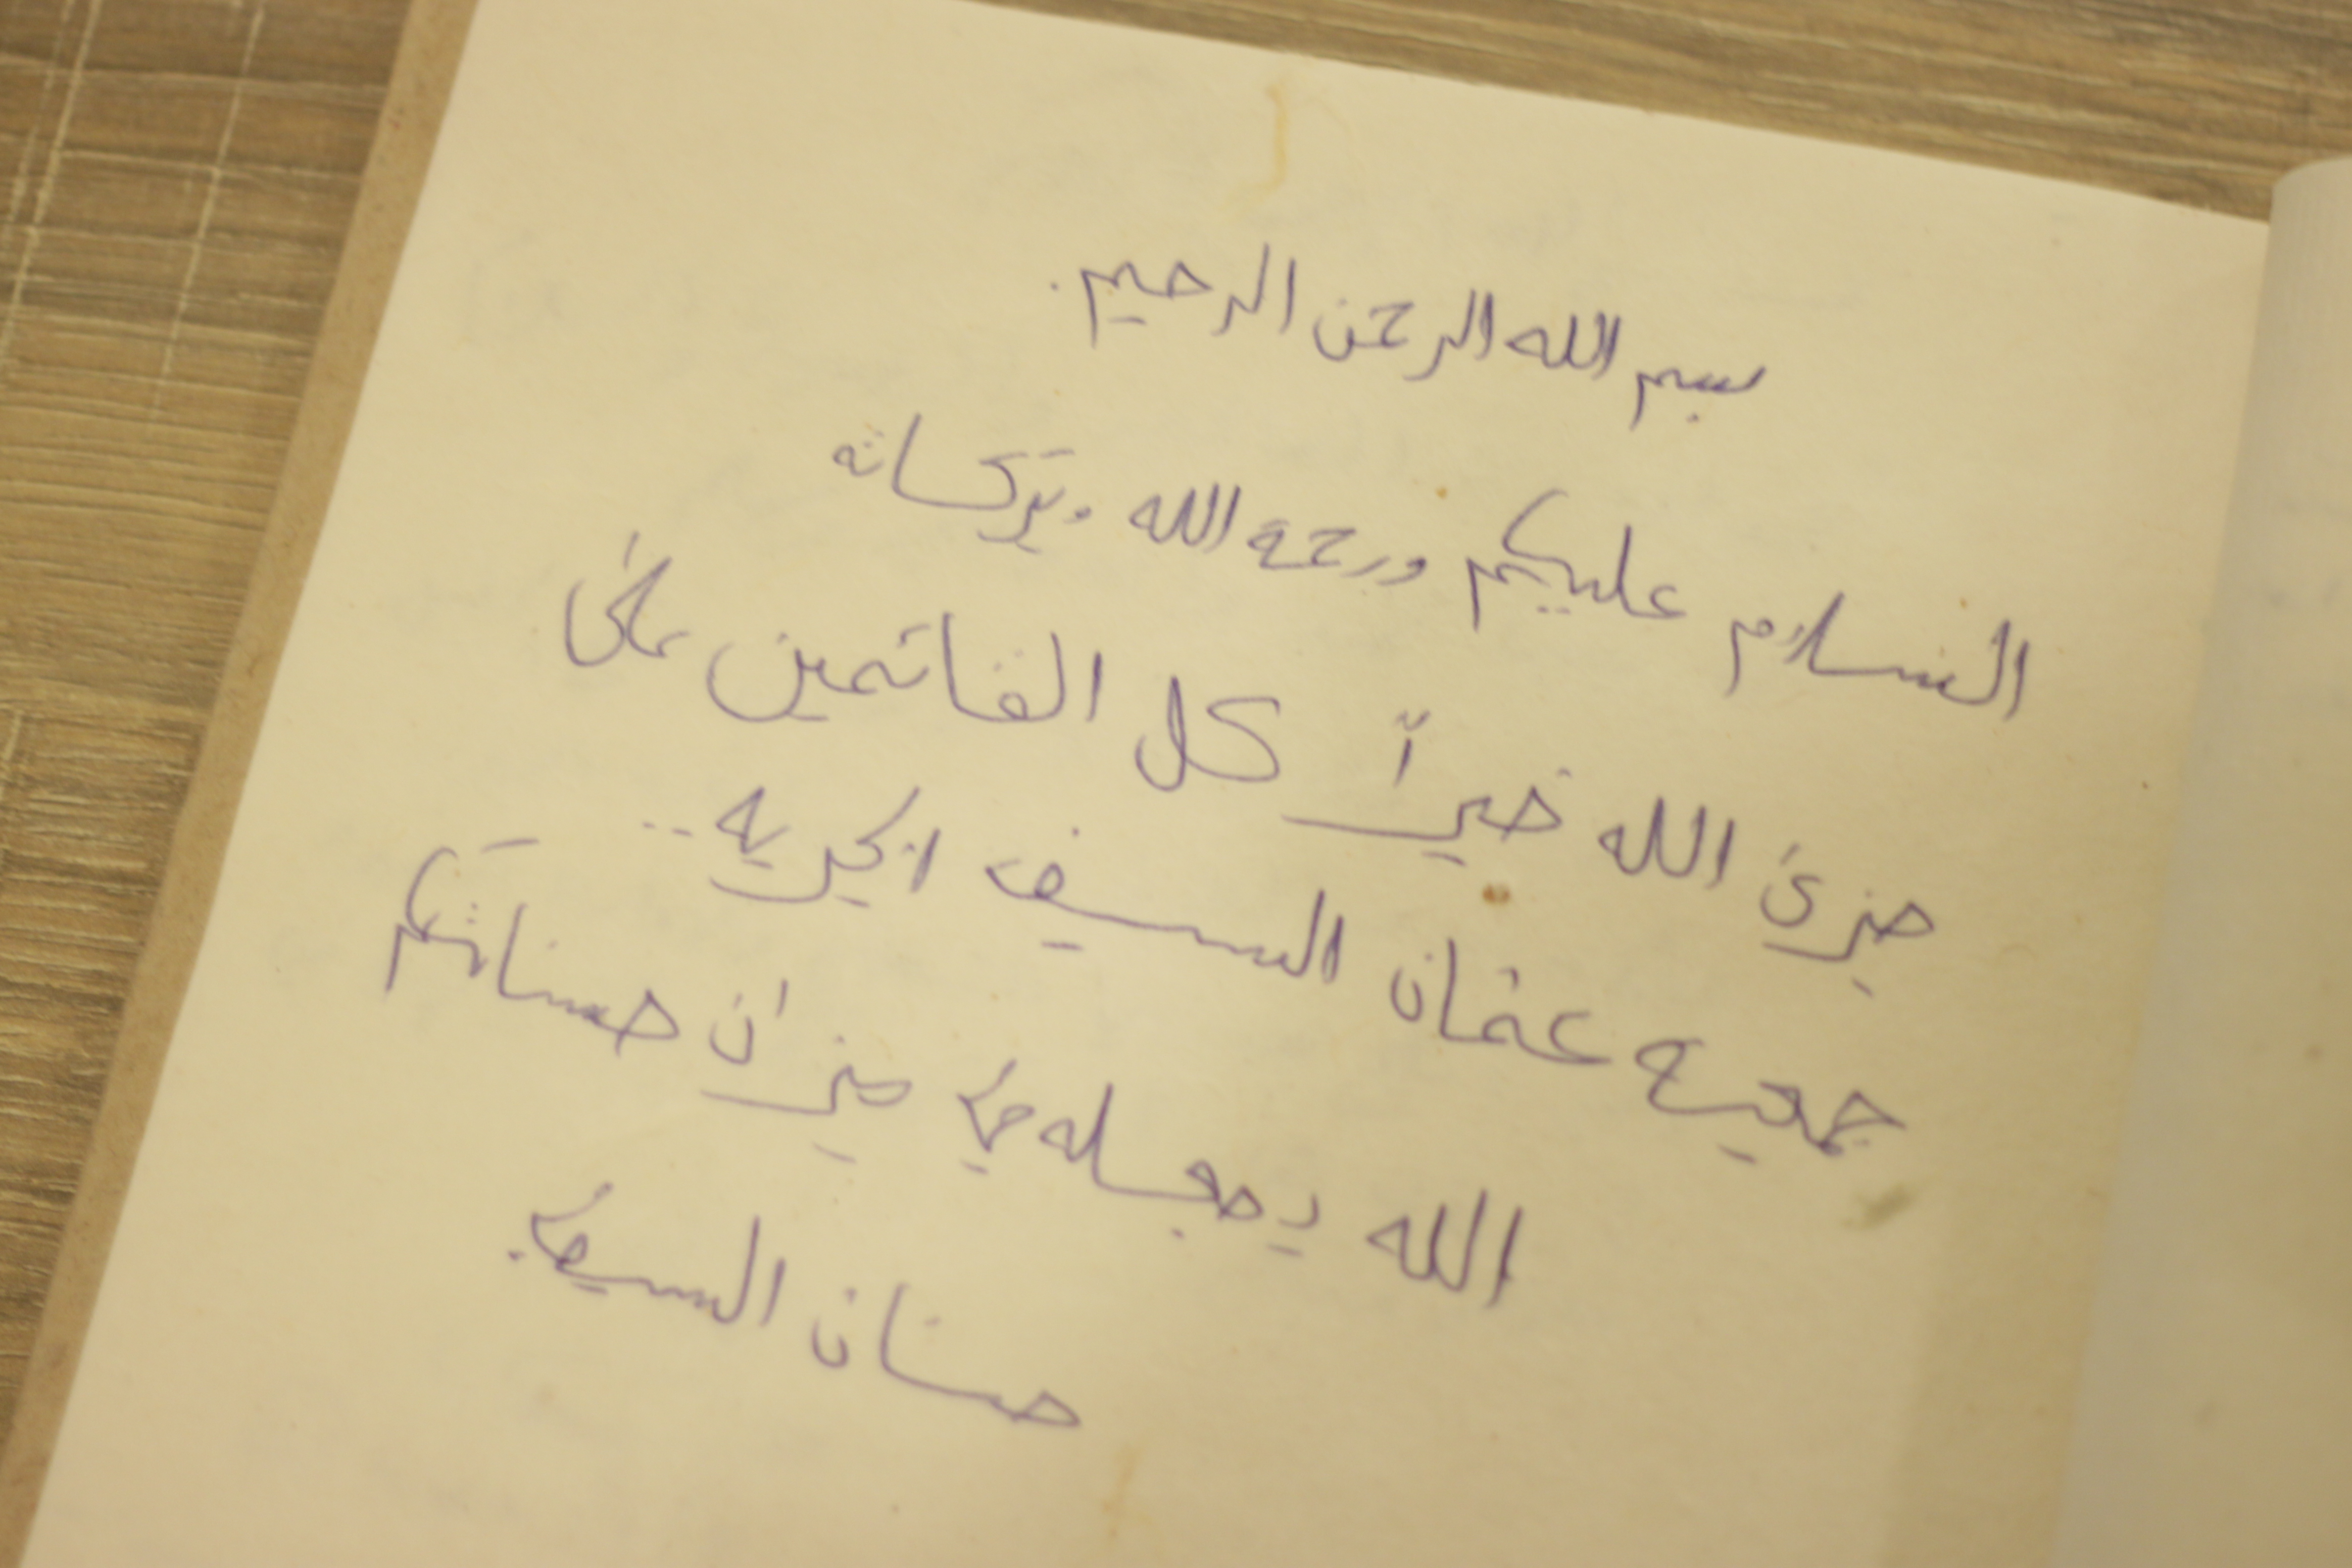 بسم الله الرحمن الرحيم.
السلام عليكم ورحمة الله وبركاته
جزى الله خيراً كل القائمين على
جمعية عثمان السيف الخيرية ..
الله يجعله في ميزان حسناتكم
حسنان السيف.